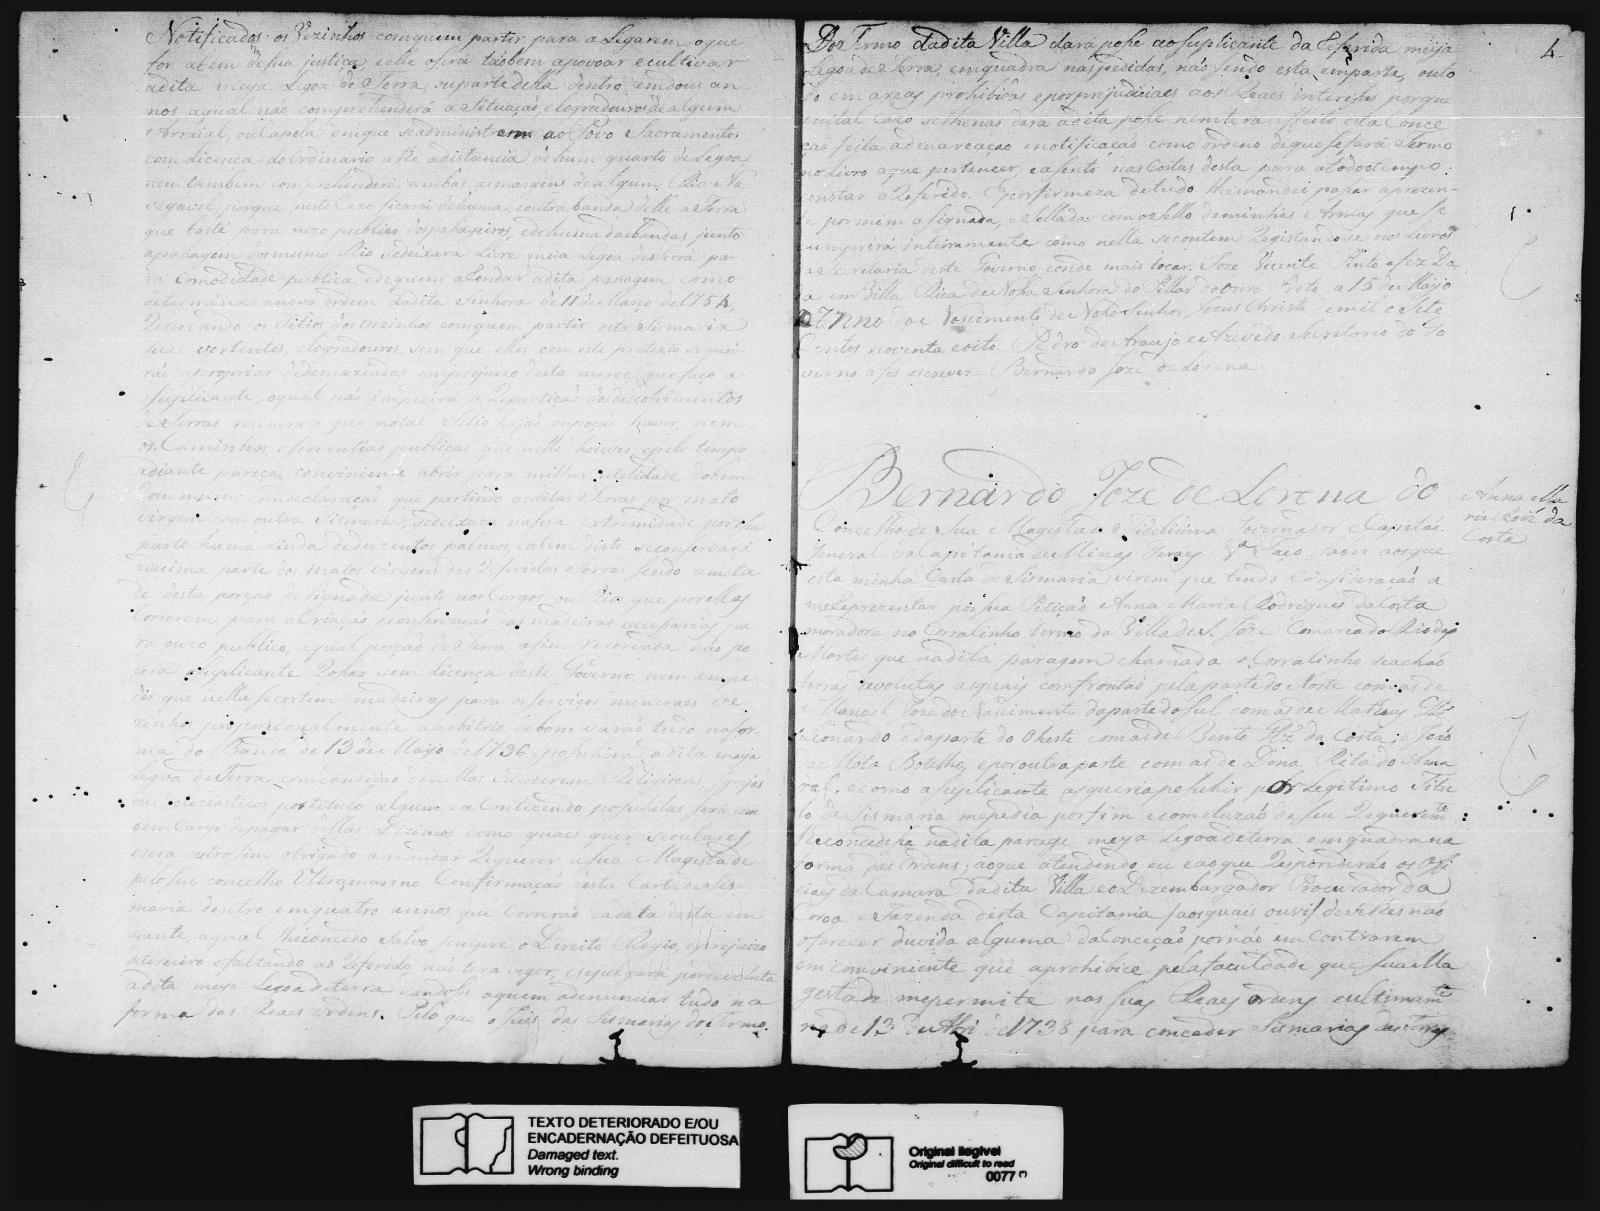 Notificados os Vezinhos comquem partir para alegarem oque
for abem desua justiça, e elle oserá taõbem apovoar ecultivar
adita meya Legoa de Terra, ou parte della dentro emdous an-
nos aqual naõ comprehenderá a Situaçaõ, elogradouros de algum
Arraial, ou Capela emque seadministrem ao Povo Sacramentos
com Licença do Ordinario a the adistancia dehum quarto deLegoa
nem tambem comprehenderá ambas asmargens de algum Rio Na
vegavel, porque neste Cazo ficará dehuma, eoutra banda delle a Terra
que baste para uzo publico dospassageiros, edehuma dasbandas junto
apassagem domesmo Rio sedeixará Livre meia Legoa deterra pa-
ra Comodidade publica, edequem aRendar adita passagem como
determina anova ordem dadita Senhora de 11 de Março de 1754,
Rezervando os Sitios dos vezinhos comquem partir esta Sismaria
suas vertentes, elogradouros, sem que elles com este pretexto sequei
raõ apropriar dedemaziadas emprejuizo desta merce que faço a
suplicante, oqual naõ impedirá a Repartiçaõ dosdescobrimentos
de Terras mineraes que notal Sitio hajaõ ou possaõ haver, nem
os Caminhos, eserventias publicas que nelle houver, epelo tempo
adiante pareça conviniente abrir para milhor utilidade dobem
Commum; comdeclaraçaõ, que partindo asditas Terras por mato
virgem com outra Sismaria, sedeixará nasua extremidade por
parte huma Linda deduzentos palmos, ealem disto seconservará
adecima parte dos matos virgens das Referidas Terras sendo ameta
de desta porçaõ designada junto aos Corgos ou Rios que porellas
Correrem para aCriaçaõ, econservaçaõ das madeiras necessarias pa
ra ouzo publico, aqual porçaõ de Terra assim rezervada naõ po-
derá oSuplicante Rossar sem licença deste Governo, nem empe-
dir que nella secortem madeiras para osserviços mineraes ve
zinhos proporcionalmente aarbitrio debom varaõ tudo nafor-
ma do Bando de 13 de Mayo de 1736, epossuhirá adita meya
Legoa de Terra comcondiçaõ denellas Sucederem Religioens, Igrejas
ou Ecleziasticos portitulo algum eaContecendo possuhilas será com
oemcargo depagar dellas Dizimos como quaes quer seculares,
esera outrosim obrigado amandar Requerer asua Magestade
pelo seu concelho Ultramarino Confirmaçaõ desta Carta deSis-
maria dentro emquatro annos que Correraõ dadata desta em
diante, aqual lheconcedo Salvo sempre o Direito Regio, eprejuizo
deterceiro efaltando ao Referido naõ terá vigor, esejulgará pordevoluta
adita meya Legoa deterra dandose aquem adenunciar tudo na
forma das Reaes Ordens. Pelo que o Juis das Sismarias do Termo
4
Dos Termo dadita Villa dará posse aoSuplicante da Referida meiya
Legoa de Terra, emquadra naspedidas, naõ sendo esta emparte, outo
do em areas prohibidas eporprejudiciaes aos Reaes interesses porque
emtal Cazo selhenaõ dará adita posse nemterá effeito esta Conce
çaõ feita ademarcaçaõ enotificaçaõ como ordeno dequesefará Termo
noLivro aque pertencer, easento nasCostas desta para atodootempo
constar oReferido. Eporfirmeza detudo lhemandei passar aprezen-
te pormim assignada, e Sellada comoSello deminhas Armas que se
cumprirá inteiramente como nella secontem Registandose nos Livros
da Secretaria deste Governo, eonde mais tocar. Joze Vicente Pinto afez Da
da em Villa Rica de Nossa Senhora do Pillar do Ouro Preto a 15 de Mayo
Anno do Nascimento de Nosso Senhor Jesus Christo emil e Sete
Centos noventa eoito. Pedro de Araujo e Azevedo Secretario do Go
verno afes escrever. Bernardo Jozé de Lorena
Bernardo Joze de Lorena do
Concelho de Sua Magestade Fidelissima Governador e Capitaõ
General da Capitania de Minas Geraes &ª Faço Saber aosque
esta minha Carta de Sismaria virem que tendo Consideraçaõ a
meReprezentar por sua Petiçaõ Anna Maria Rodrigues da Costa
moradora no Corralinho termo da Villa de S. Joze Comarca do Rio das
Mortes que nadita paragem chamada o Corralinho seachaõ
terras devolutas asquais confrontaõ pela parte do Norte comas de
Manoel Joze do Nascimento daparte do Sul com as de Matheus
Lionardo edaparte do Oheste comasde Bento Rz da Costa, e Joaõ
da Mota Botelho, eporoutra parte com as de Dona Rita do Ama
ral, ecomo a suplicante asqueria possuhir por Legitimo Titu
lo de Sismaria mepedia porfim ecomcluzaõ deseu Requerimto
lheconcedese nadita parage meya Legoa deterra emquadra na
forma das Ordens; aoque atendendo eu eaoque Responderaõ os Offi
ciaes da Camara dadita Villa eo Dezembargador Procurador da
Coroa eFazenda desta Capitania (aosquais ouvi) deselhes naõ
oferecer duvida alguma daConceçaõ pornaõ emContrarem
emconviniente que aprohibice pelafaculdade que Sua Ma
gestade mepermite nas Suas Reaes ordens eultimamte
na de 13 de Abril de 1738 para conceder Sismarias das Terras
Anna Ma
ria Roiz da
Costa
TEXTO DETERIORADO E/OU
ENCADERNAÇÃO DEFEITUOSA
Damaged text.
Wrong binding
Original ilegível
Original difficult to read
0077